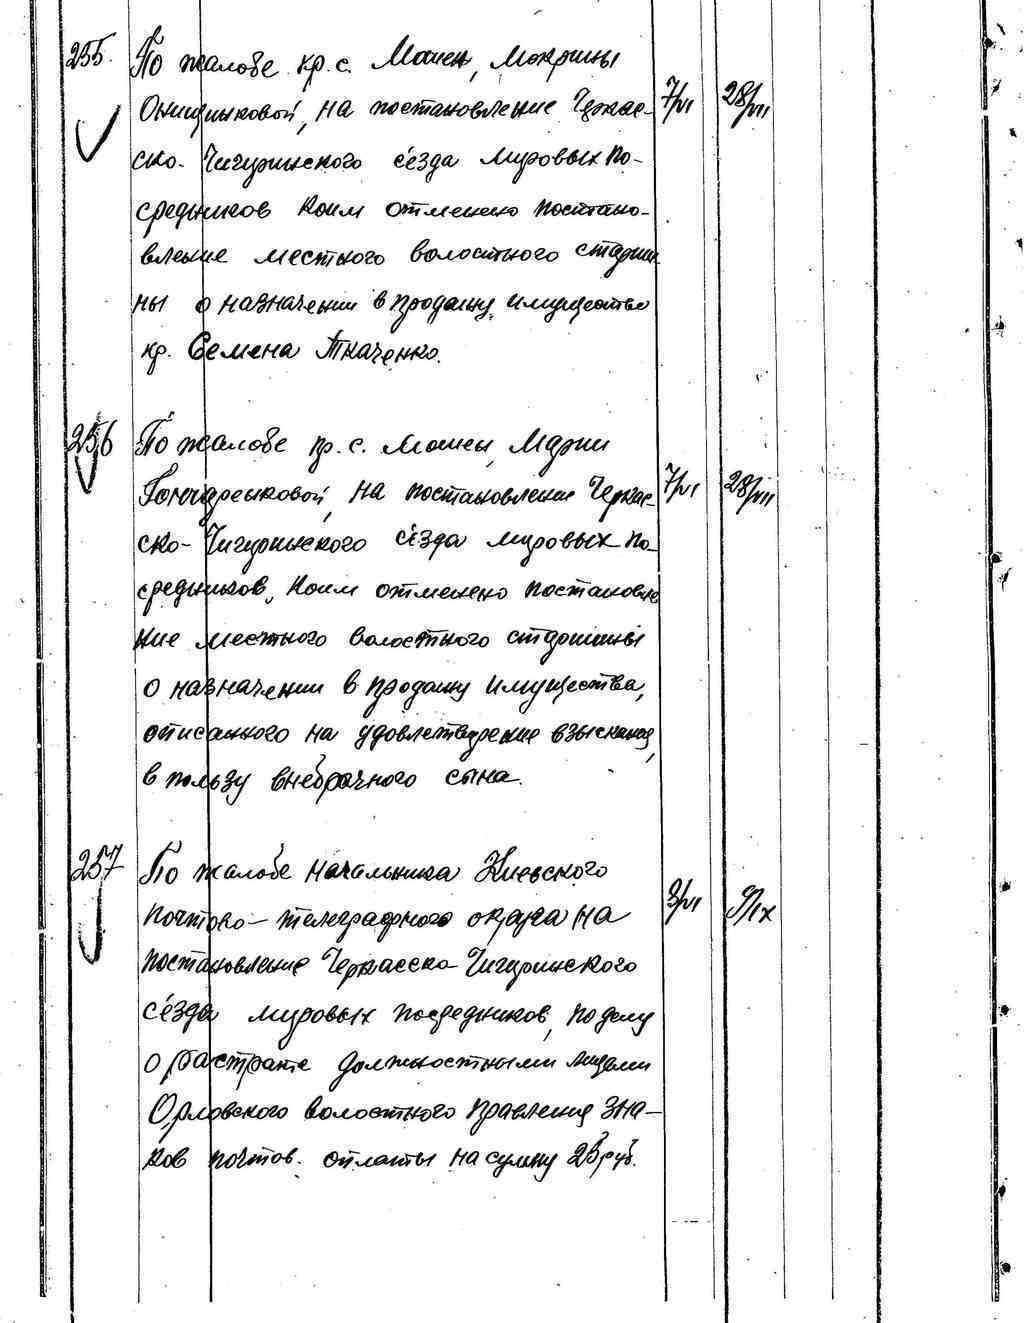 255. По жалобе кр. с. Мошен, Мокрины
Онищенковой, на постановление Черкас- 7/VI 28/VII
ско-Чигиринского с'езда мировых по-
средников коим отменено постано-
вление местного волостного старши
ны о назначении в продажу имущества
кр. Семена Ткаченко.
256 По жалобе кр. с. Мошны, Марии
Гончаренковой, на постановление Черкас- 7/VI 28/VII
ско-Чигиринского с'езда мировых по-
средников, коим отменено постановле
ние местного волостного старшины
о назначении в продажу имущества,
описанного на удовлетворение взыскания,
в пользу внебрачного сына.
257 По жалобе начальника Киевского
почтово-телеграфного округа на 3/VI 9/IX
постановление Черкасско-Чигиринского
с'езда мировых посредников, по делу
о растрате должностными лицами
Орловского волостного правления зна-
ков почтов. оплаты на сумму 25 руб.